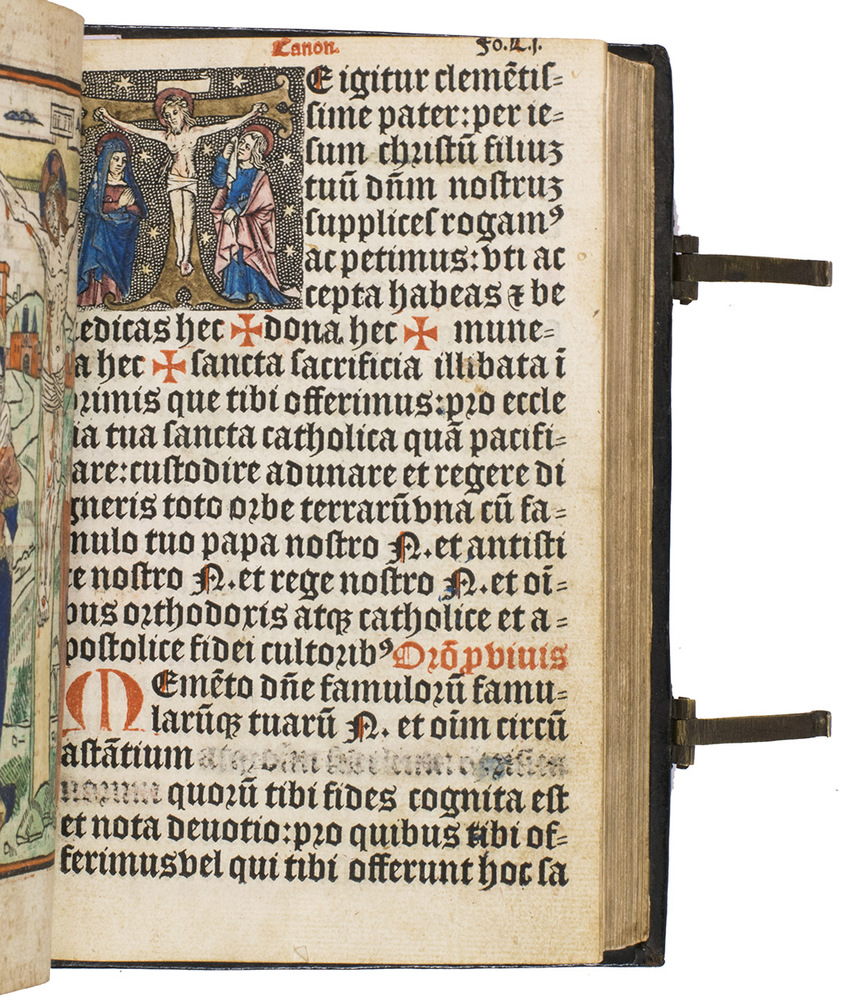 Canon. Fo. L.j.
TE igitur clemẽtiſ=
ſime pater: per ie=
ſum chriſtũ filiuʒ
tuũ dñm noſtruʒ
ſupplices rogamꝰ
ac petimus: vti ac
cepta habeas ⁊ be
edicas hec ✠ dona hec ✠ mune=
a hec ✠ ſancta ſacrificia illibata ĩ
primis que tibi offerimus: pro eccle
ia tua ſancta catholica quã pacifi=
are: cuſtodire adunare et regere di
gneris toto orbe terrarũ vna cũ fa=
mulo tuo papa noſtro N. et antiſti
te noſtro N. et rege noſtro N. et oĩ=
bus orthodoxis atqꝫ catholice et a=
poſtolice fidei cultoribꝰ Orõ ꝓ viuis
MEmẽto dñe famulorũ famu=
larũqꝫ tuarũ N. et oĩm circũ
aſtãtium
quorũ tibi fides cognita eſt
et nota deuotio: pro quibus tibi of=
ferimus vel qui tibi offerunt hoc ſa